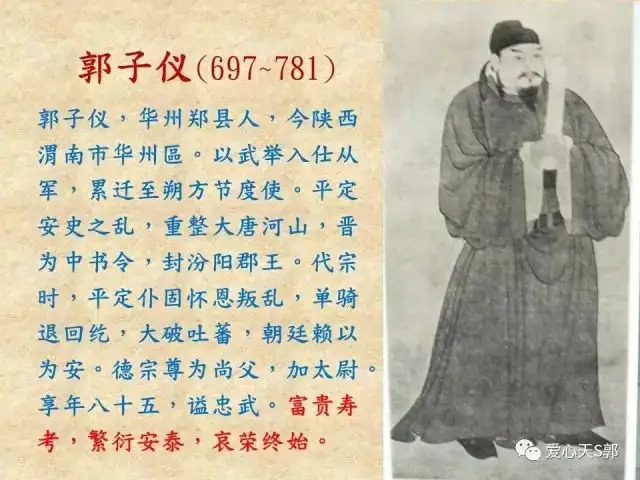 郭子仪(697~781)
郭子仪，华州郑县人，今陕西
渭南市华州區。以武举入仕从
军，累迁至朔方节度使。平定
安史之乱，重整大唐河山，晋
为中书令，封汾阳郡王。代宗
时，平定仆固怀恩叛乱，单骑
退回纥，大破吐蕃，朝廷赖以
为安。德宗尊为尚父，加太尉。
享年八十五，谥忠武。富贵寿
考，繁衍安泰，哀荣终始。
爱心天S郭